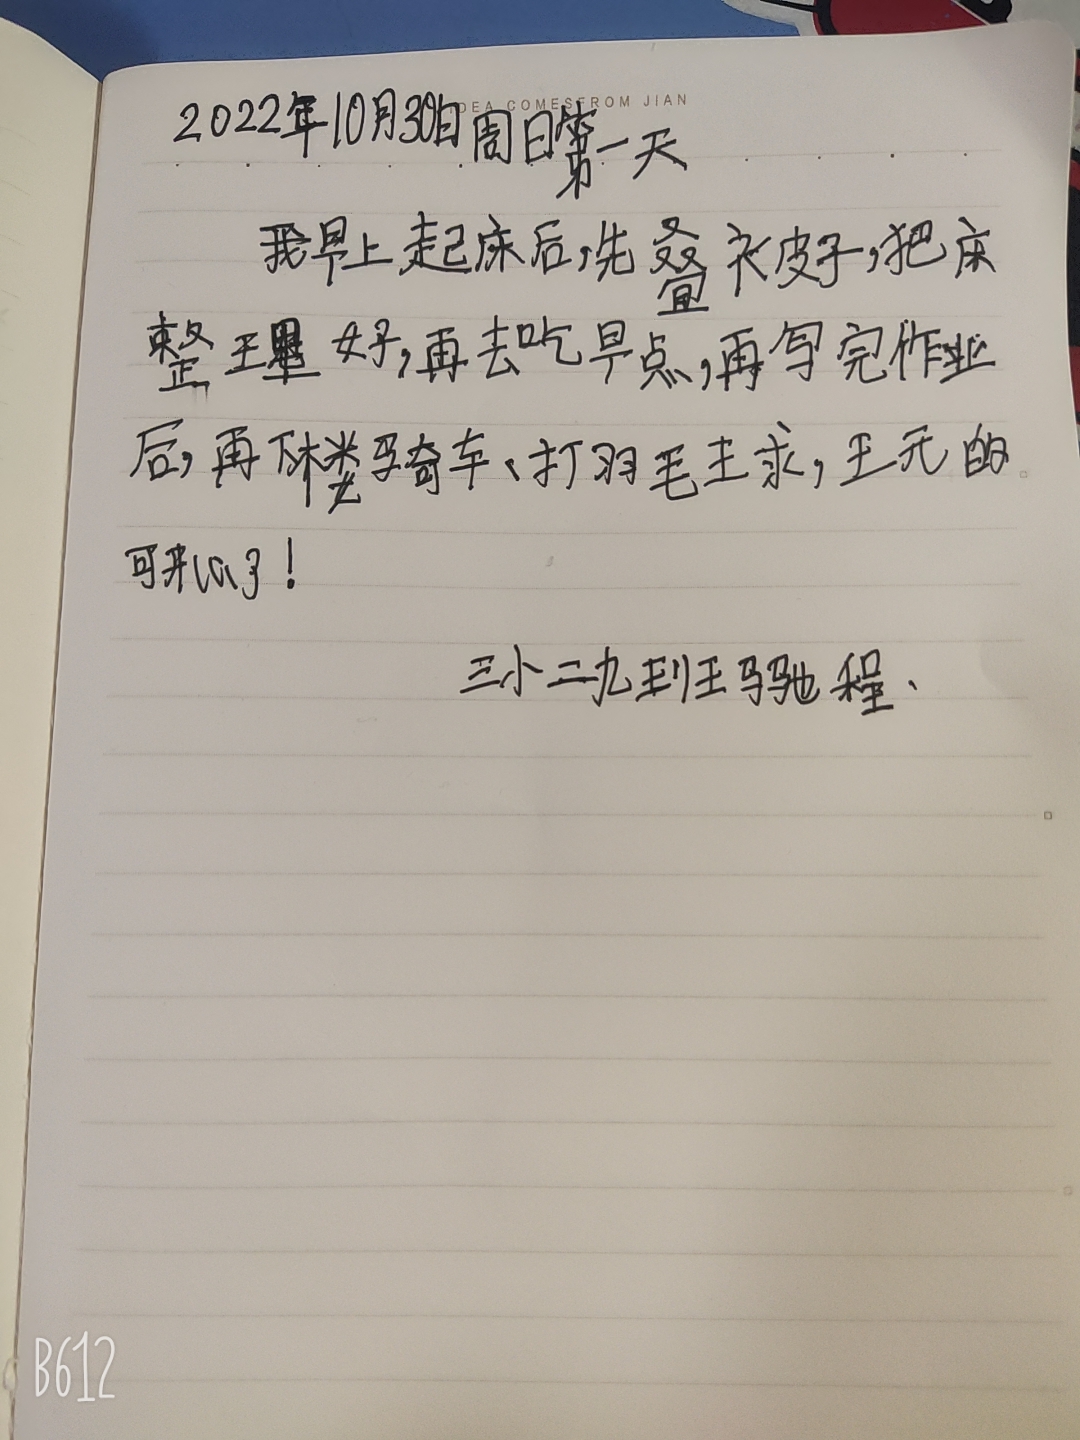 IDEA COMES FROM JIAN
2022年10月30日周日第一天
我早上起床后,先叠衣皮子,把床
整理好,再去吃早点,再写完作业
后,再下楼骑车、打羽毛球,玩的
可开心了!
三小二九班王驰程.
B612